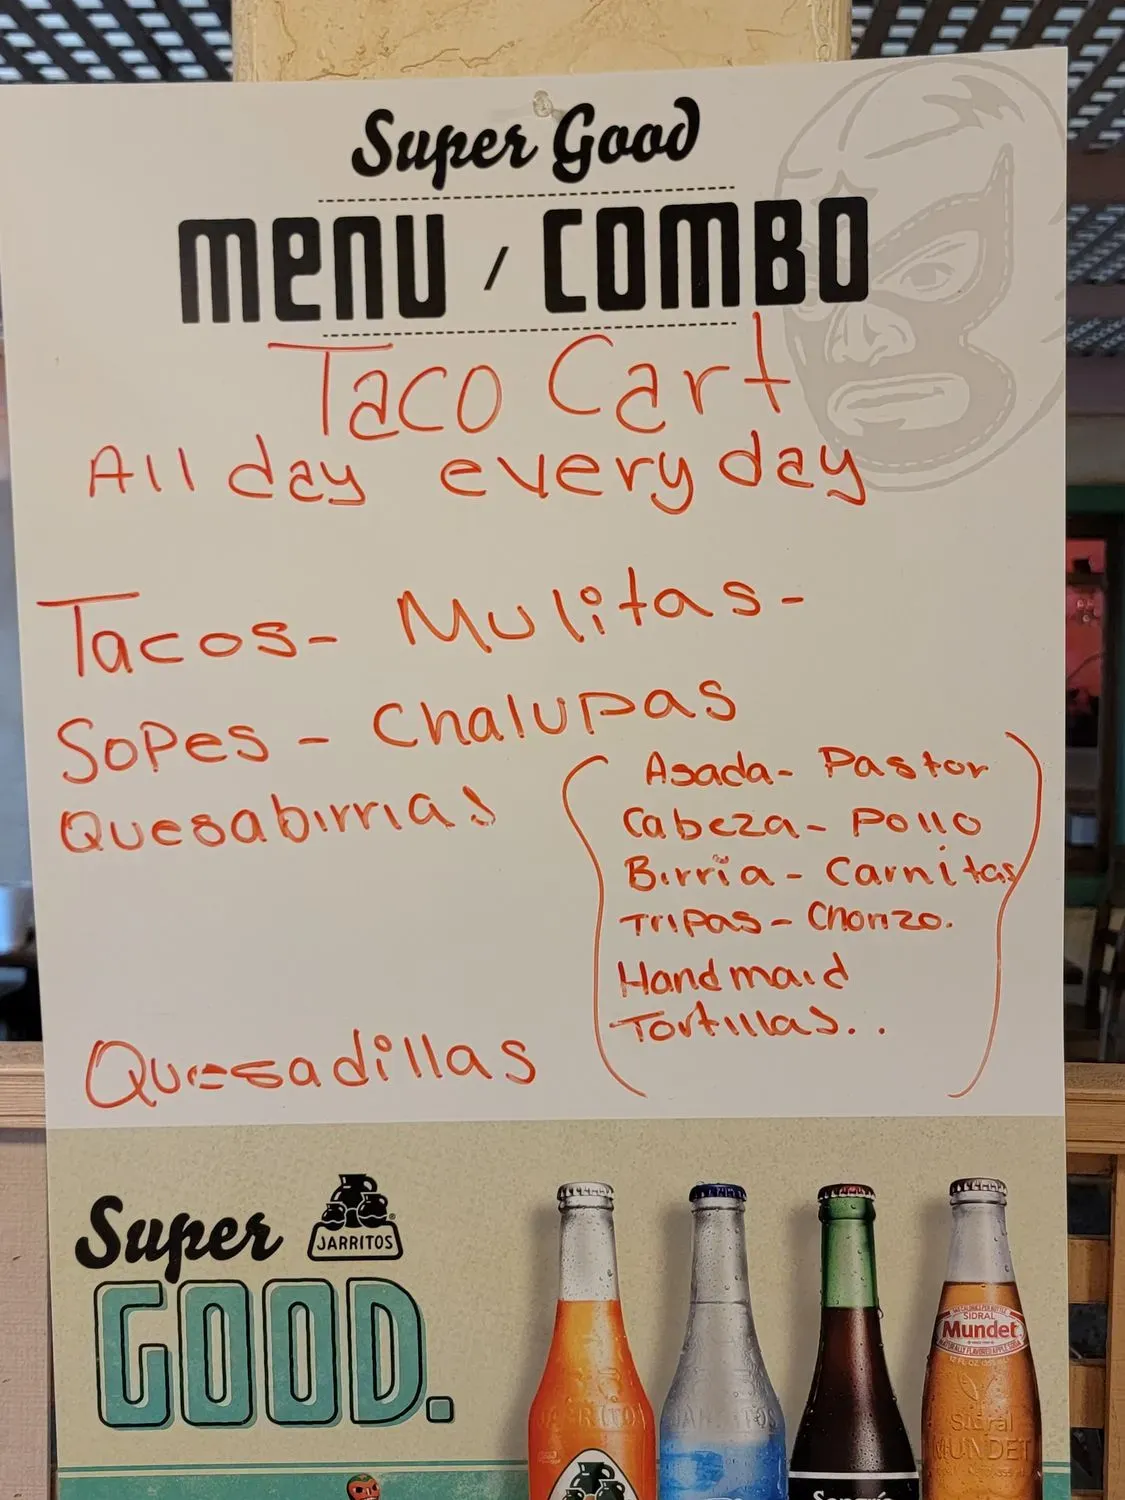 Super Good
MENU / COMBO
Taco Cart
All day everyday
Tacos- Mulitas-
Sopes - Chalupas
Quesabirrias
Asada- Pastor
Cabeza- Pollo
Birria - Carnitas
Tripas - Chorizo.
Handmaid
Tortillas...
Quesadillas
Super
JARRITOS
GOOD.
SIDRAL
Mundet
NATURALLY FLAVORED APPLE SODA
12 FL OZ
Sidral
MUNDET
JARRITOS
JARRITOS